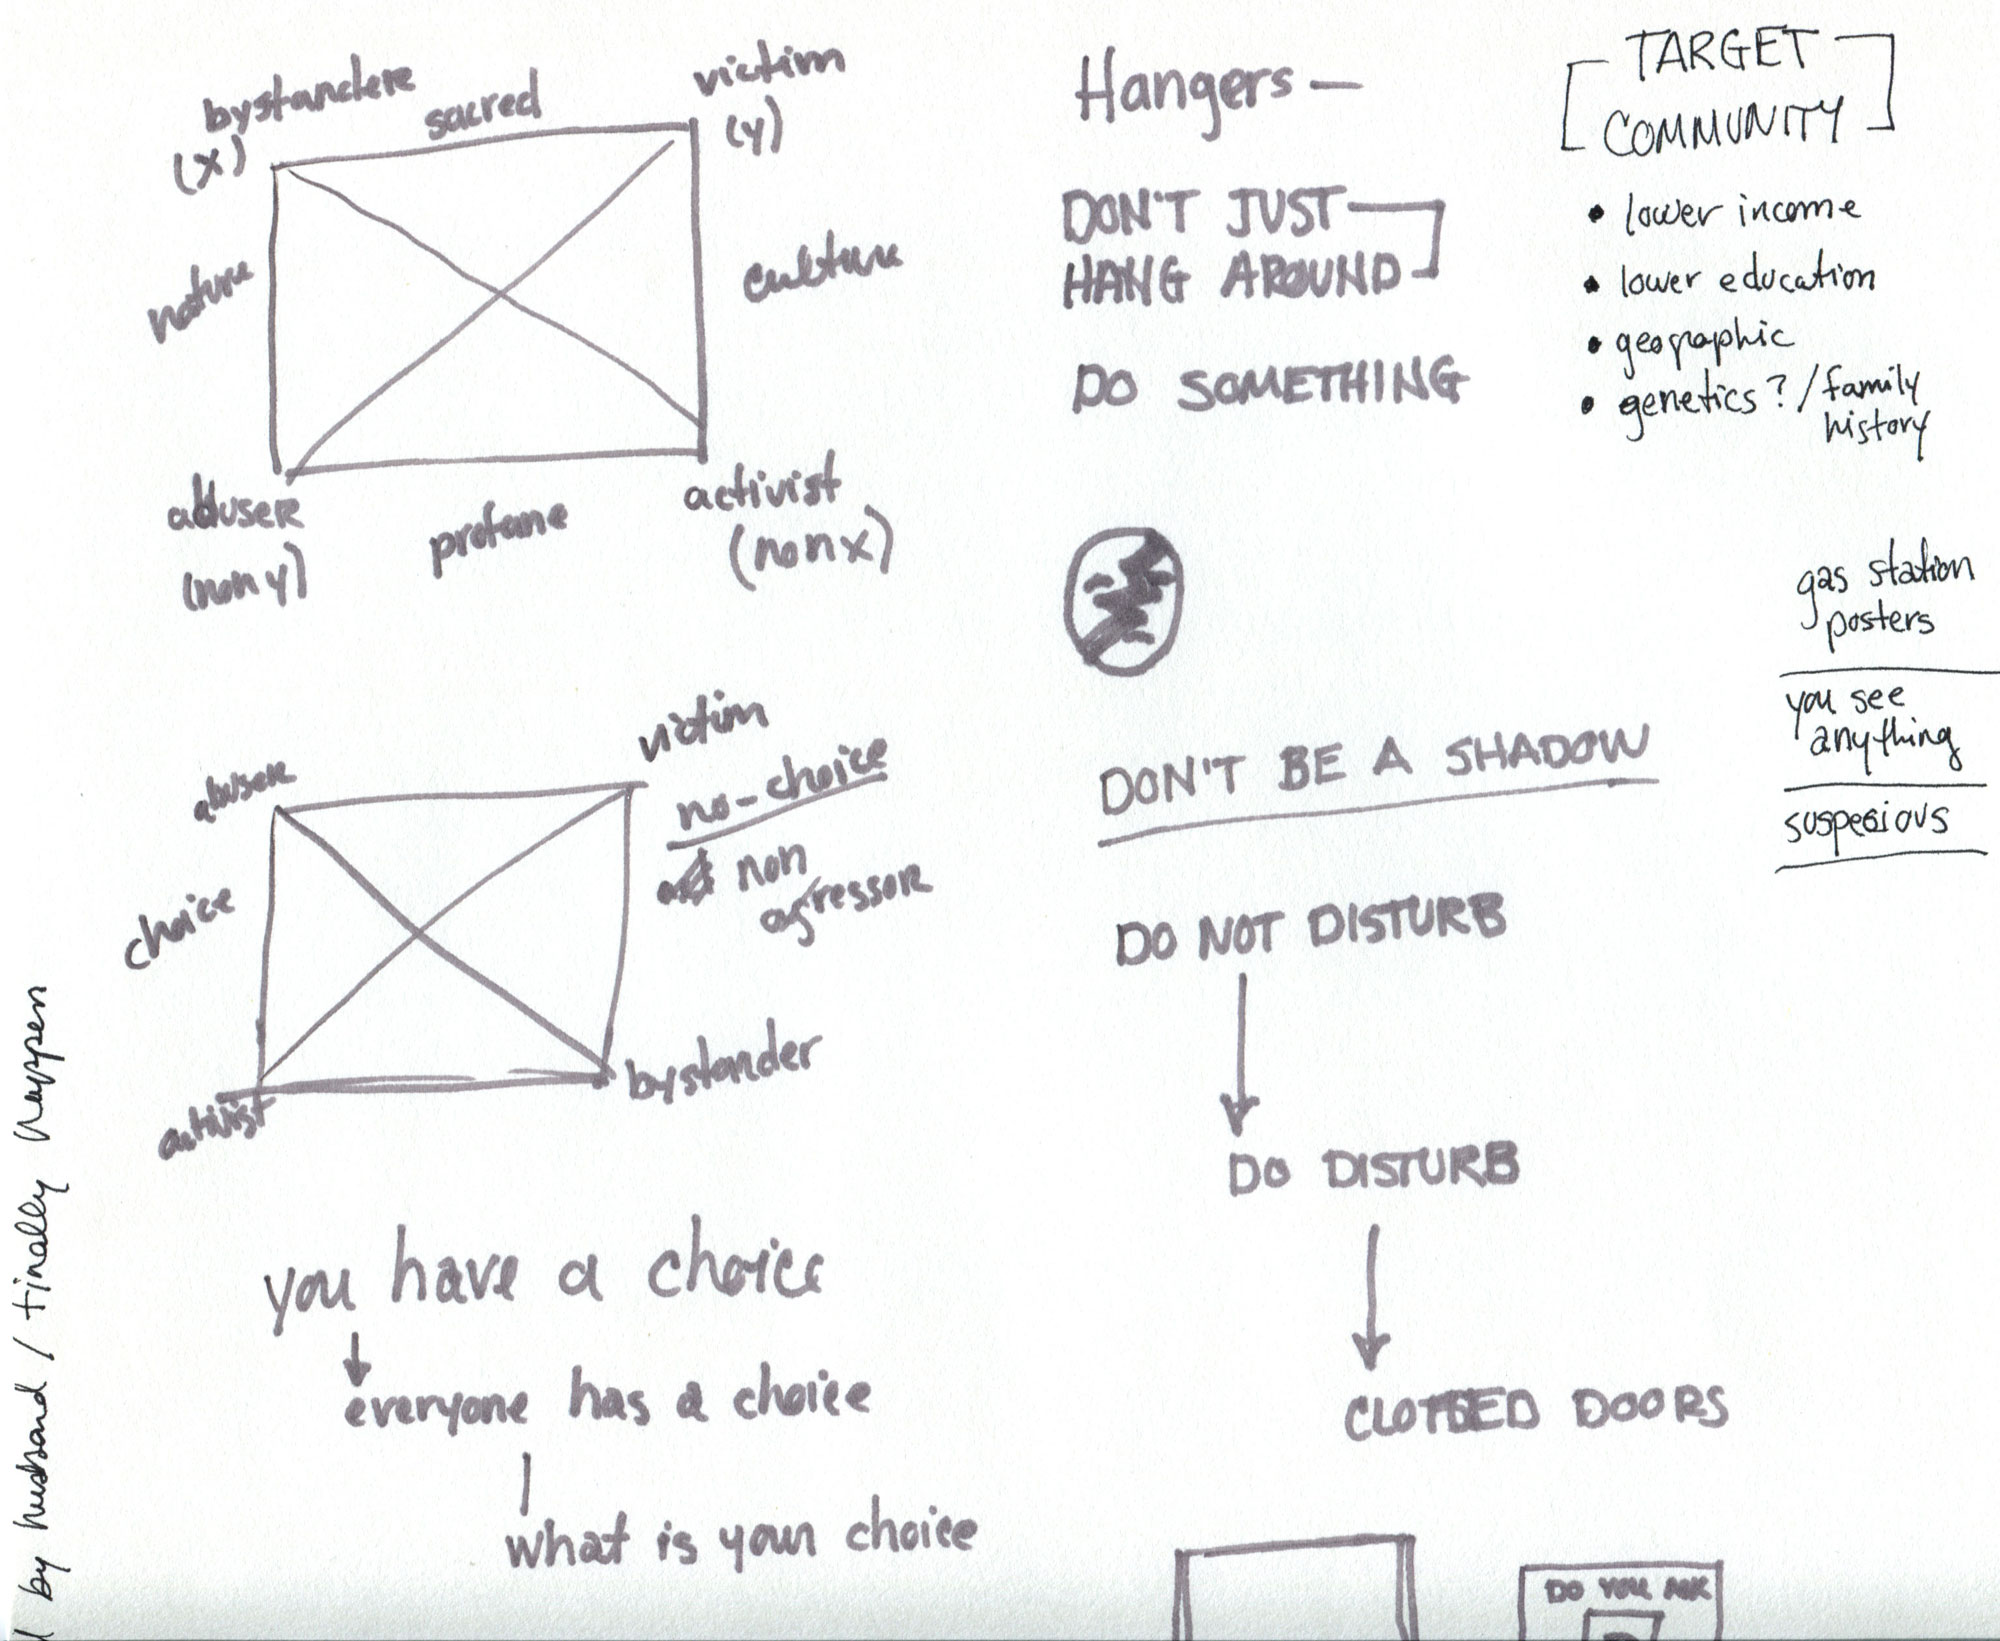 bystandere
(x)
sacred
victim
(y)
nature
culture
abuser
(non y)
profane
activist
(non x)
abuser
victim
no-choice
non
agressor
choice
activist
bystander
you have a choice
everyone has a choice
what is your choice
by husband / finally happen
Hangers —
DON'T JUST
HANG AROUND
DO SOMETHING
DON'T BE A SHADOW
DO NOT DISTURB
DO DISTURB
CLOSED DOORS
DO YOU ASK
TARGET
COMMUNITY
• lower income
• lower education
• geographic
• genetics? / family
history
gas station
posters
you see
anything
suspecious